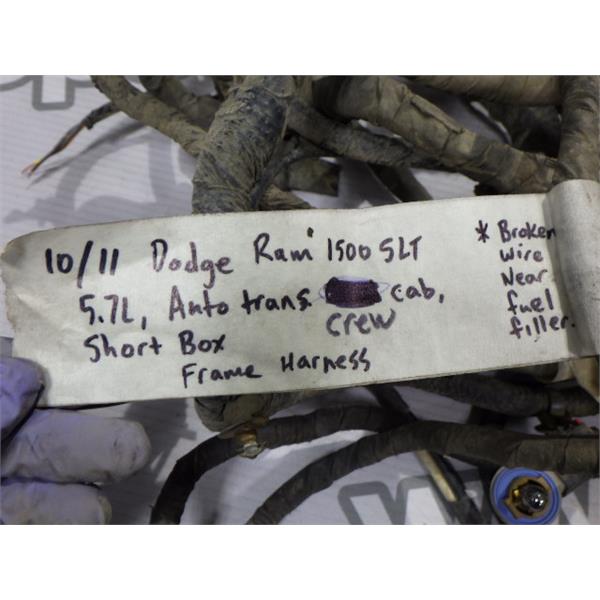 10/11 Dodge Ram 1500 SLT
5.7L, Auto trans. cab,
crew
Short Box
Frame Harness
* Broken
wire
Near
fuel
filler.